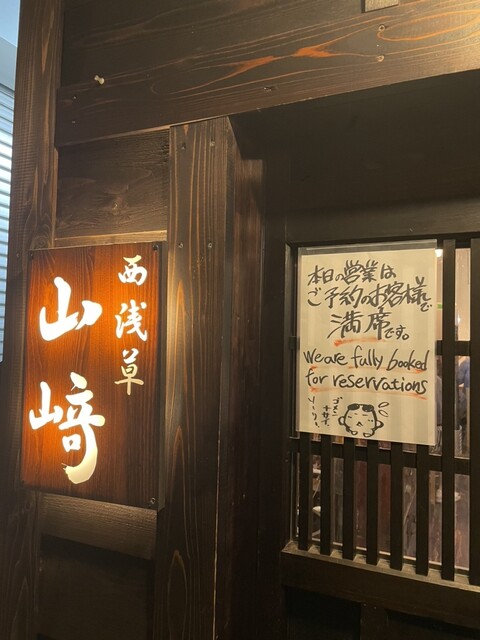 西浅草
山﨑
本日の営業は
ご予約のお客様で
満席です。
we are fully booked
for reservations
ゴメン
ナサイ